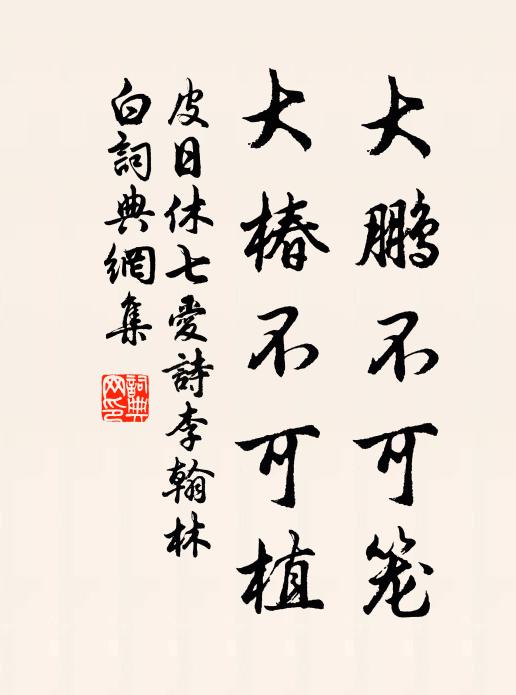 大鹏不可笼
大椿不可植
皮日休七愛詩李翰林
白詞典網集
詞典
网印